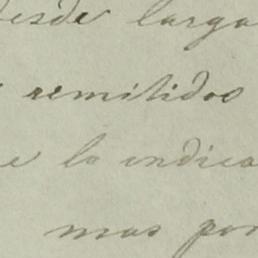 desde larga
remitidos
e lo indica
mas por